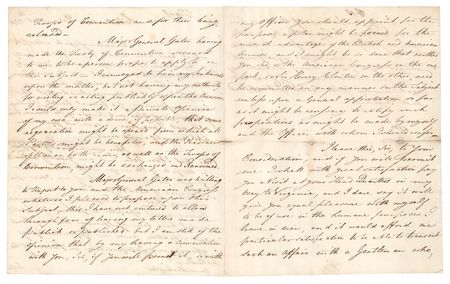 Troops of Convention and for their being
released.
Major General Gates having
made the Treaty of Convention seemed
to me to be a person proper to apply to on
this Subject. I conveyed to him my Sentiments
upon the matter, but not having any authority
for writing or acting publickly upon the occasion
I could only make it a private Opinion
of my own with a desire, if possible that some
negociation might be opened from which all
Parties might be benefited, and the Prisoners
of War on both sides, as well as the Troops of
Convention, might be exchanged and Ransomed.
Major General Gates was willing
to Report to you and the American Congress
whatever I pleased to propose upon this
Subject. This I have not ventured to allow
through fear of having my letters made
publick or published but I am still of the
opinion that by my having a conversation
with you, Sir, if you will permit it, or with
any Officer you should appoint for this
purpose, a plan might be formed for the
mutual advantage of the British and American
Service, and it might be so done that neither
You, Sir, or the American Congress on the one
part, or Sir Henry Clinton on the other, need
be committed in any manner on the Subject
except upon a General approbation, so far
as it might be necessary to ratify such
propositions as might be made by myself
and the Officer with whom I should confer.
I leave this, Sir, to Your
Consideration, and if you will permit
me I shall with great satisfaction pay
you a visit at Your Head Quarters on my
Way to Virginia, and I dare say it will
give you equal pleasure with myself
to be of use in the humane purposes I
have in view, and it would afford me
particular satisfaction to be able to transact
such an affair with a Gentleman who,